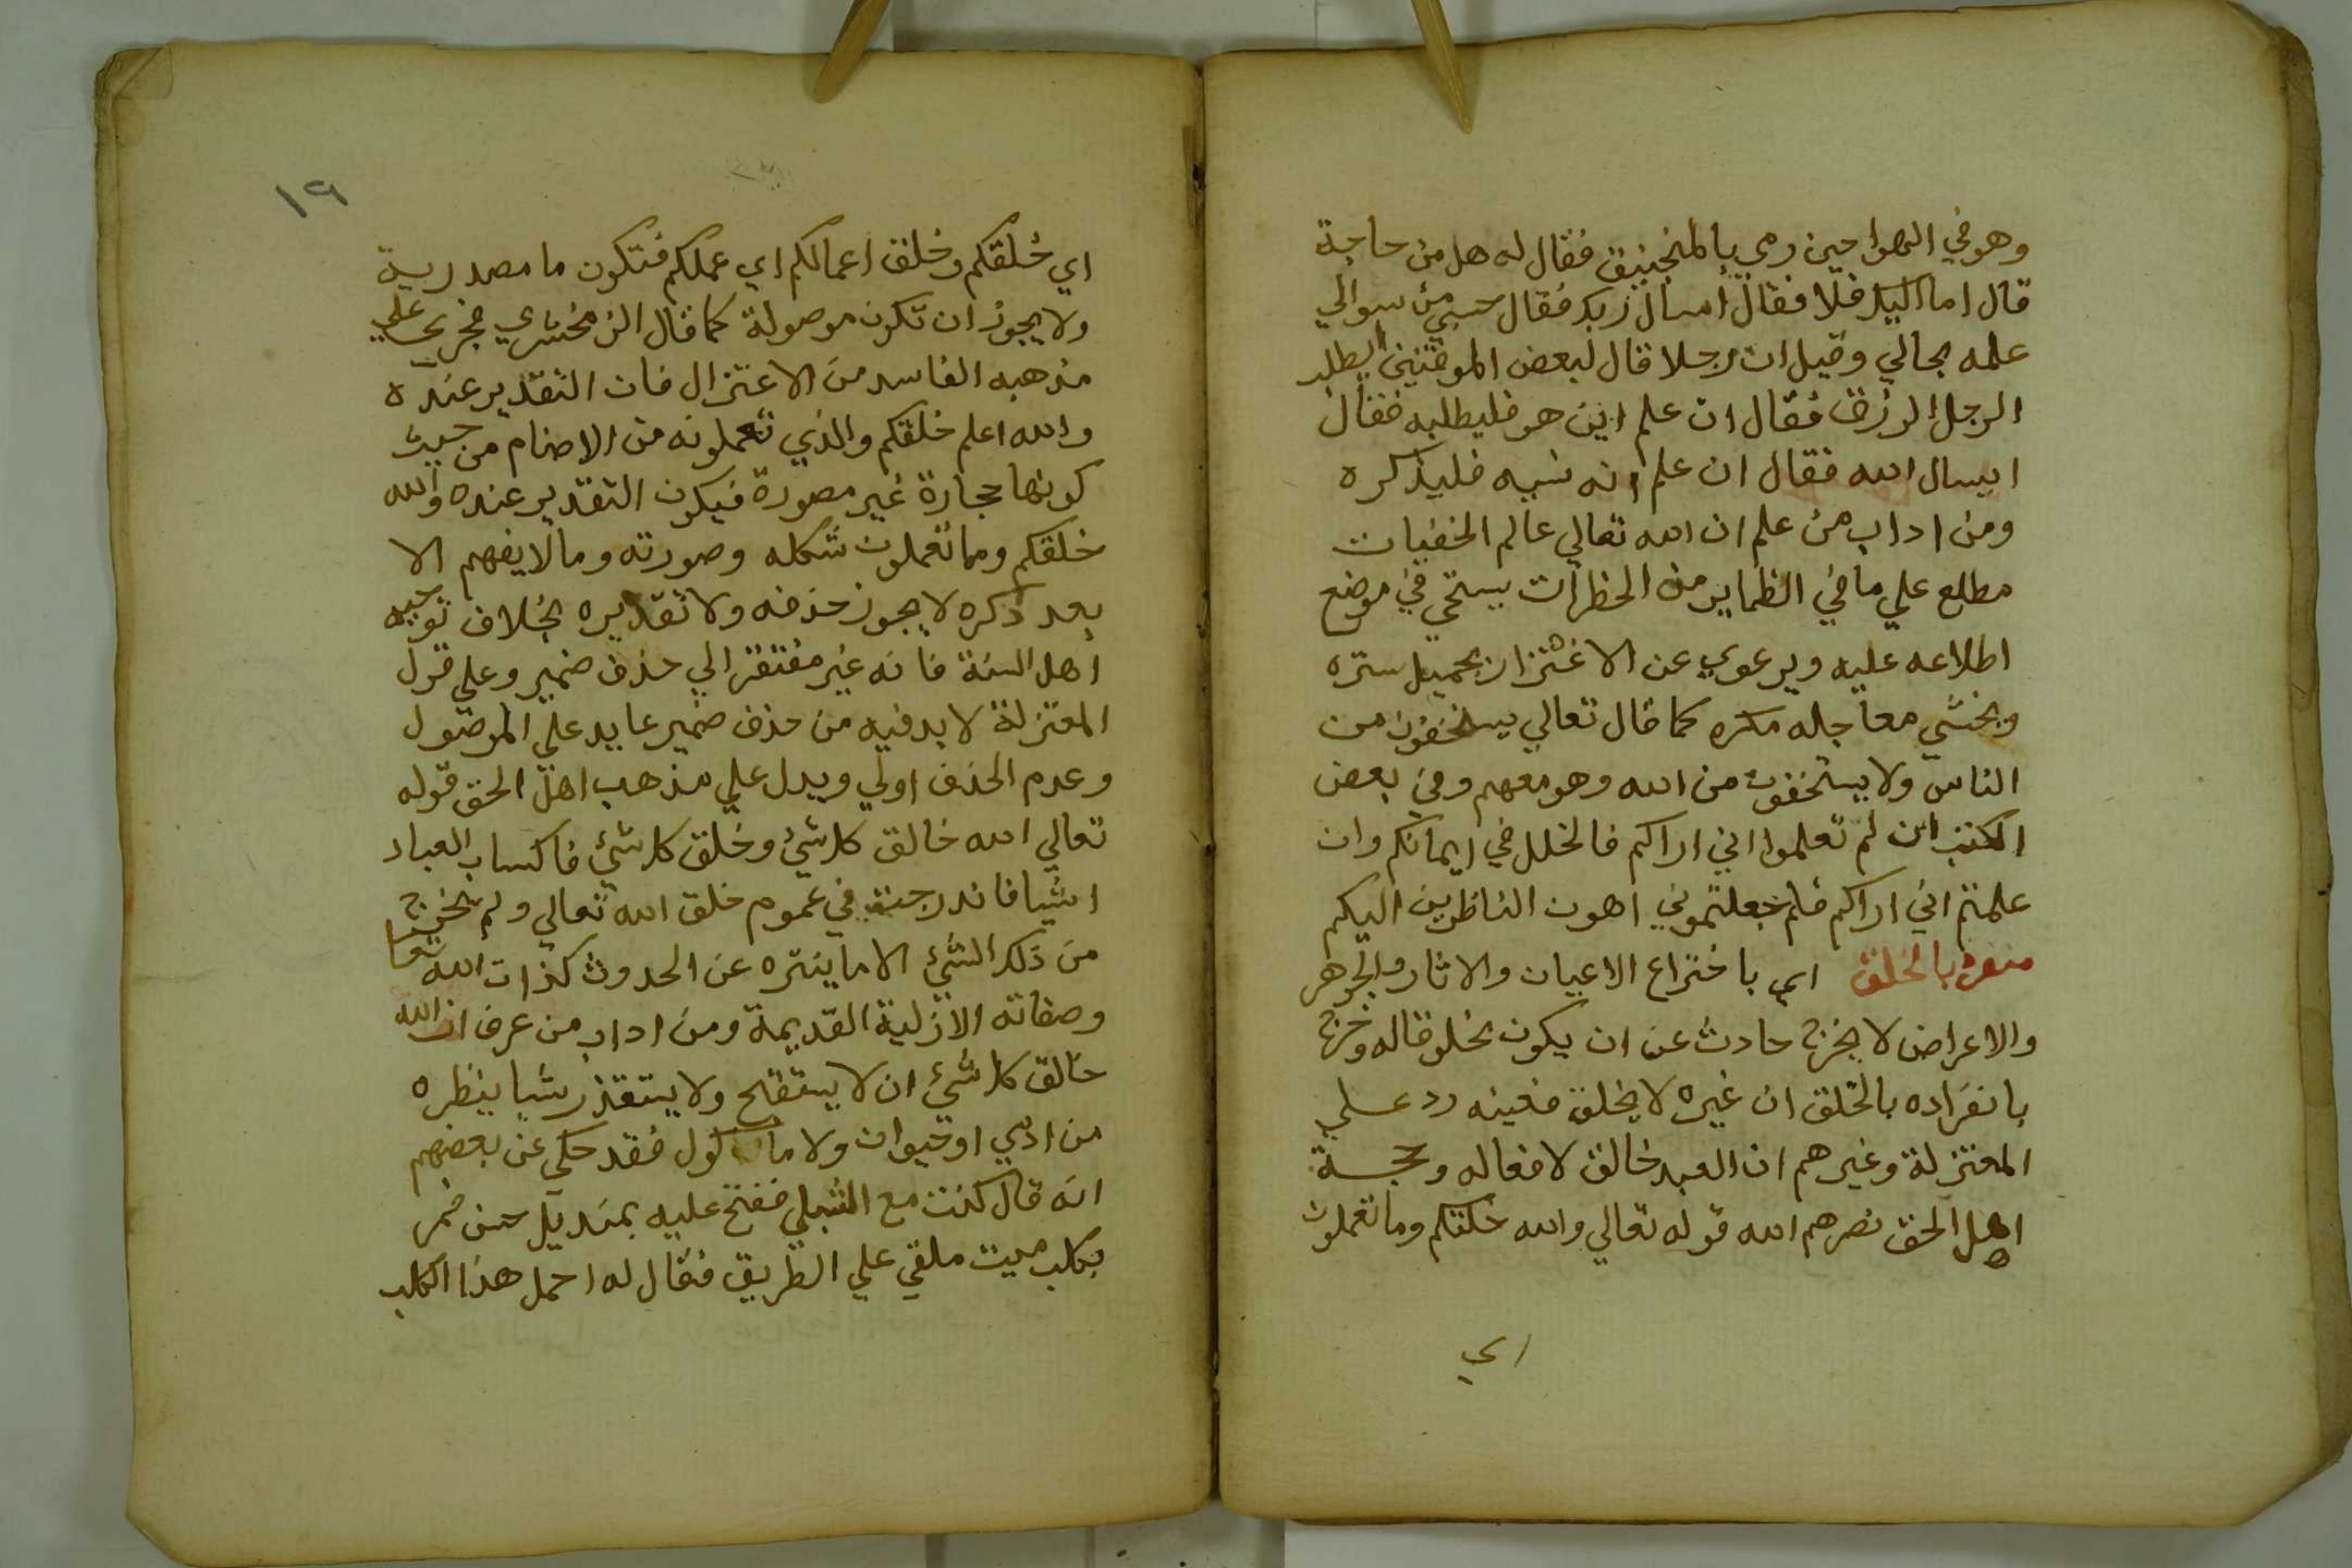 وهو في الهوا حين رمي بالمنجنيق فقال له هل من حاجة
قال اما اليك فلا فقال اسال ربك فقال حسبي من سوالي
علمه بحالي وقيل ان رجلا قال لبعض الموقنين ايطلب
الرجل الرزق فقال ان علم اين هو فليطلبه فقال
ايسال الله فقال ان علم انه نسيه فليذكره
ومن اداب من علم ان الله تعالي عالم الخفيات
مطلع علي ما في الظماير من الخطرات يستحي في موضع
اطلاعه عليه ويرعوي عن الاغتزار بجميل ستره
ويخشي معاجله مكره كما قال تعالي يستخفون من
الناس ولا يستخفون من الله وهو معهم وفي بعض
الكتب ان لم تعلموا اني اراكم فالخلل في ايمانكم وان
علمتم اني اراكم فلم جعلتموني اهون الناظرين اليكم
منفرد بالخلق اي باختراع الاعيان والاثار والجوهر
والاعراض لا يخرج حادث عن ان يكون مخلوقا له وخرج
بانفراده بالخلق ان غيره لا يخلق ففيه رد علي
المعتزلة وغيرهم ان العبد خالق لافعاله وحجة
اهل الحق نصرهم الله قوله تعالي والله خلقكم وما تعملون
اي
١٩
اي خلقكم وخلق اعمالكم اي عملكم فتكون ما مصدرية
ولا يجوز ان تكون موصولة كما قال الزمخشري فجري علي
مذهبه الفاسد من الاعتزال فان التقدير عنده
والله اعلم خلقكم والذي تعملونه من الاصنام من حيث
كونها حجارة غير مصورة فيكون التقدير عنده والله
خلقكم وما تعملون شكله وصورته وما لا يفهم الا
بعد ذكره لا يجوز حذفه ولا تقديره بخلاف توجيه
اهل السنة فانه غير مفتقر الي حذف ضمير وعلي قول
المعتزلة لا بد فيه من حذف ضمير عايد علي الموصول
وعدم الحذف اولي ويدل علي مذهب اهل الحق قوله
تعالي الله خالق كل شيء وخلق كل شيء فاكساب العباد
اشيا فاندرجت في عموم خلق الله تعالي ولم يخرج
من ذلك الشيء الا ما ينزه عن الحدوث كذات الله تعا
وصفاته الازلية القديمة ومن اداب من عرف ان الله
خالق كل شيء ان لا يستقبح ولا يستقذر شيا ينظره
من ادمي او حيوان ولا ماكول فقد حكي عن بعضهم
انه قال كنت مع الشبلي ففتح عليه بمنديل حسن فمر
بكلب ميت ملقي علي الطريق فقال له احمل هذا الكلب